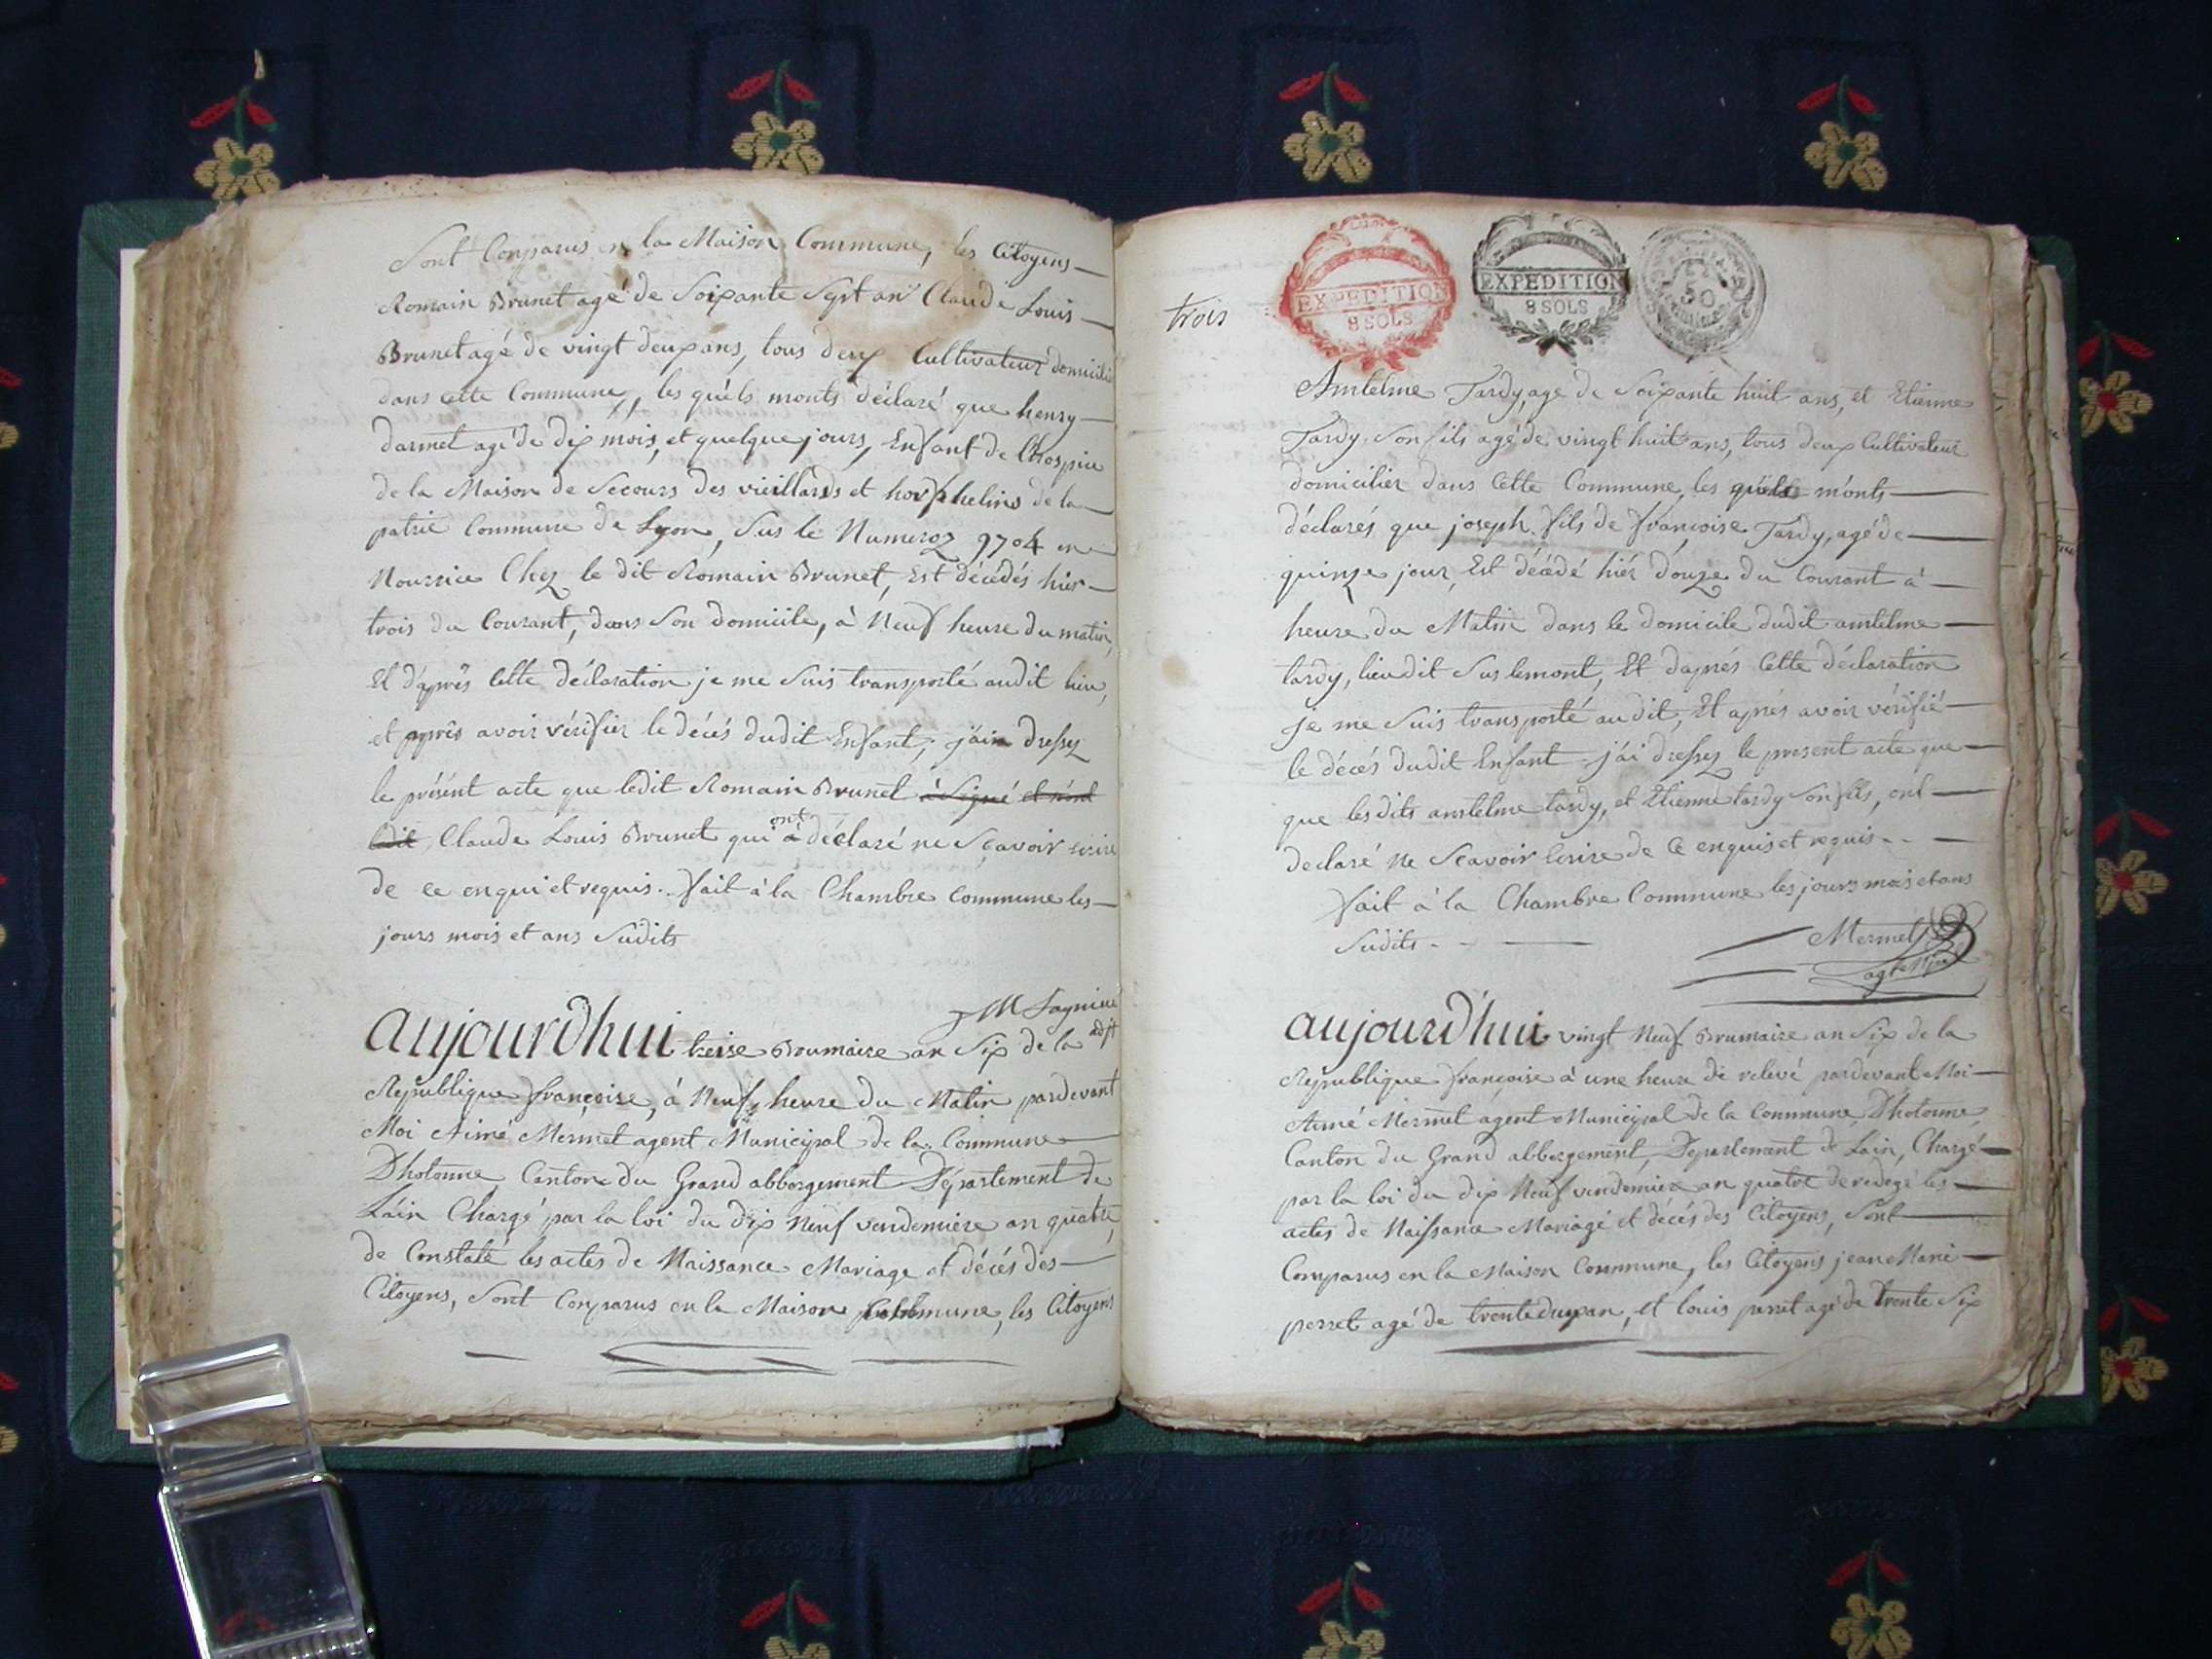 Sont Conparus en la Maison Commune, les Citoyens
Romain Brunet agé de Soixante Sept an Claude Louis
Brunet agé de vingt deux ans, tous deux Cultivateur domicilié
dans Cette Commune, les quéls monts déclaré que henry
darmet agé de dix mois, et quelque jours, Enfant de lhospice
de la Maison de Secours des vieillards et horphelins de la
patrie Commune de Lyon, Sus le Numeroz 9704 en
Nourrice Chez le dit Romain Brunet, Est décédés hier
trois du Courant, dans Son domicile, à Neuf heure du matin,
Et d'après Cette déclaration je me Suis transporté audit lieu,
et après avoir vérifier le décés dudit Enfant, j'ai dressez
le présent acte que ledit Romain Brunet à Signé et n'ont
ledit Claude Louis Brunet qui ont à déclaré ne Sçavoir Ecrire
de ce enqui et requis. fait à la Chambre Commune les
jours mois et ans Sudits
M Sagnieu
adjt
aujourdhui treise Brumaire an Six de la
République françoise, à Neuf heure du Matin pardevant
Moi Aimé Mermet agent Municipal de la Commune
D'hotonne Canton du Grand abbergement Département de
Láin Chargé par la loi du dix Neuf vendemiere an quatre
de Constaté les actes de Naissance Mariage et décés des
Citoyens, Sont Conparus en la Maison Commune, les Citoyens
trois
EXPEDITION
8 SOLS
EXPEDITION
8 SOLS
50
Amtelme Tardy, agé de Soixante huit ans, et Etienne
Tardy Son fils agé de vingt huit ans, tous deux Cultivateur
domicilier dans Cette Commune, les quéls m'onts
déclarés que joseph fils de françoise Tardy, agé de
quinze jour, Est décédé hiér douze du Courant à
heure du Matin dans le domicile dudit amtelme
tardy, lieudit Sus lemont, Et daprés Cette déclaration
Je me Suis transporté audit, Et aprés avoir vérifié
le décés dudit Enfant j'ai dressez le present acte que
que lesdits amtelme tardy, et Etienne tardy Son fils, ont
declaré Ne Scavoir Ecrire de Ce enquis et requis..
fait à la Chambre Commune les jours mois et ans
Sudits.
Mermet
agt
aujourd'hui vingt Neuf Brumaire an Six de la
République françoise à une heure de relevé pardevant Moi
Aimé Mermet agent Municipal de la Commune D'hotonne,
Canton du Grand abbergement, Département de Lain, Chargé
par la loi du dix Neuf vendemiere an quatre de redegé les
actes de Naissance Mariagé et décés des Citoyens, Sont
Comparus en la Maison Commune, les Citoyens jean Marie
perret agé de trente deux an, et louis perret agé de trente Six